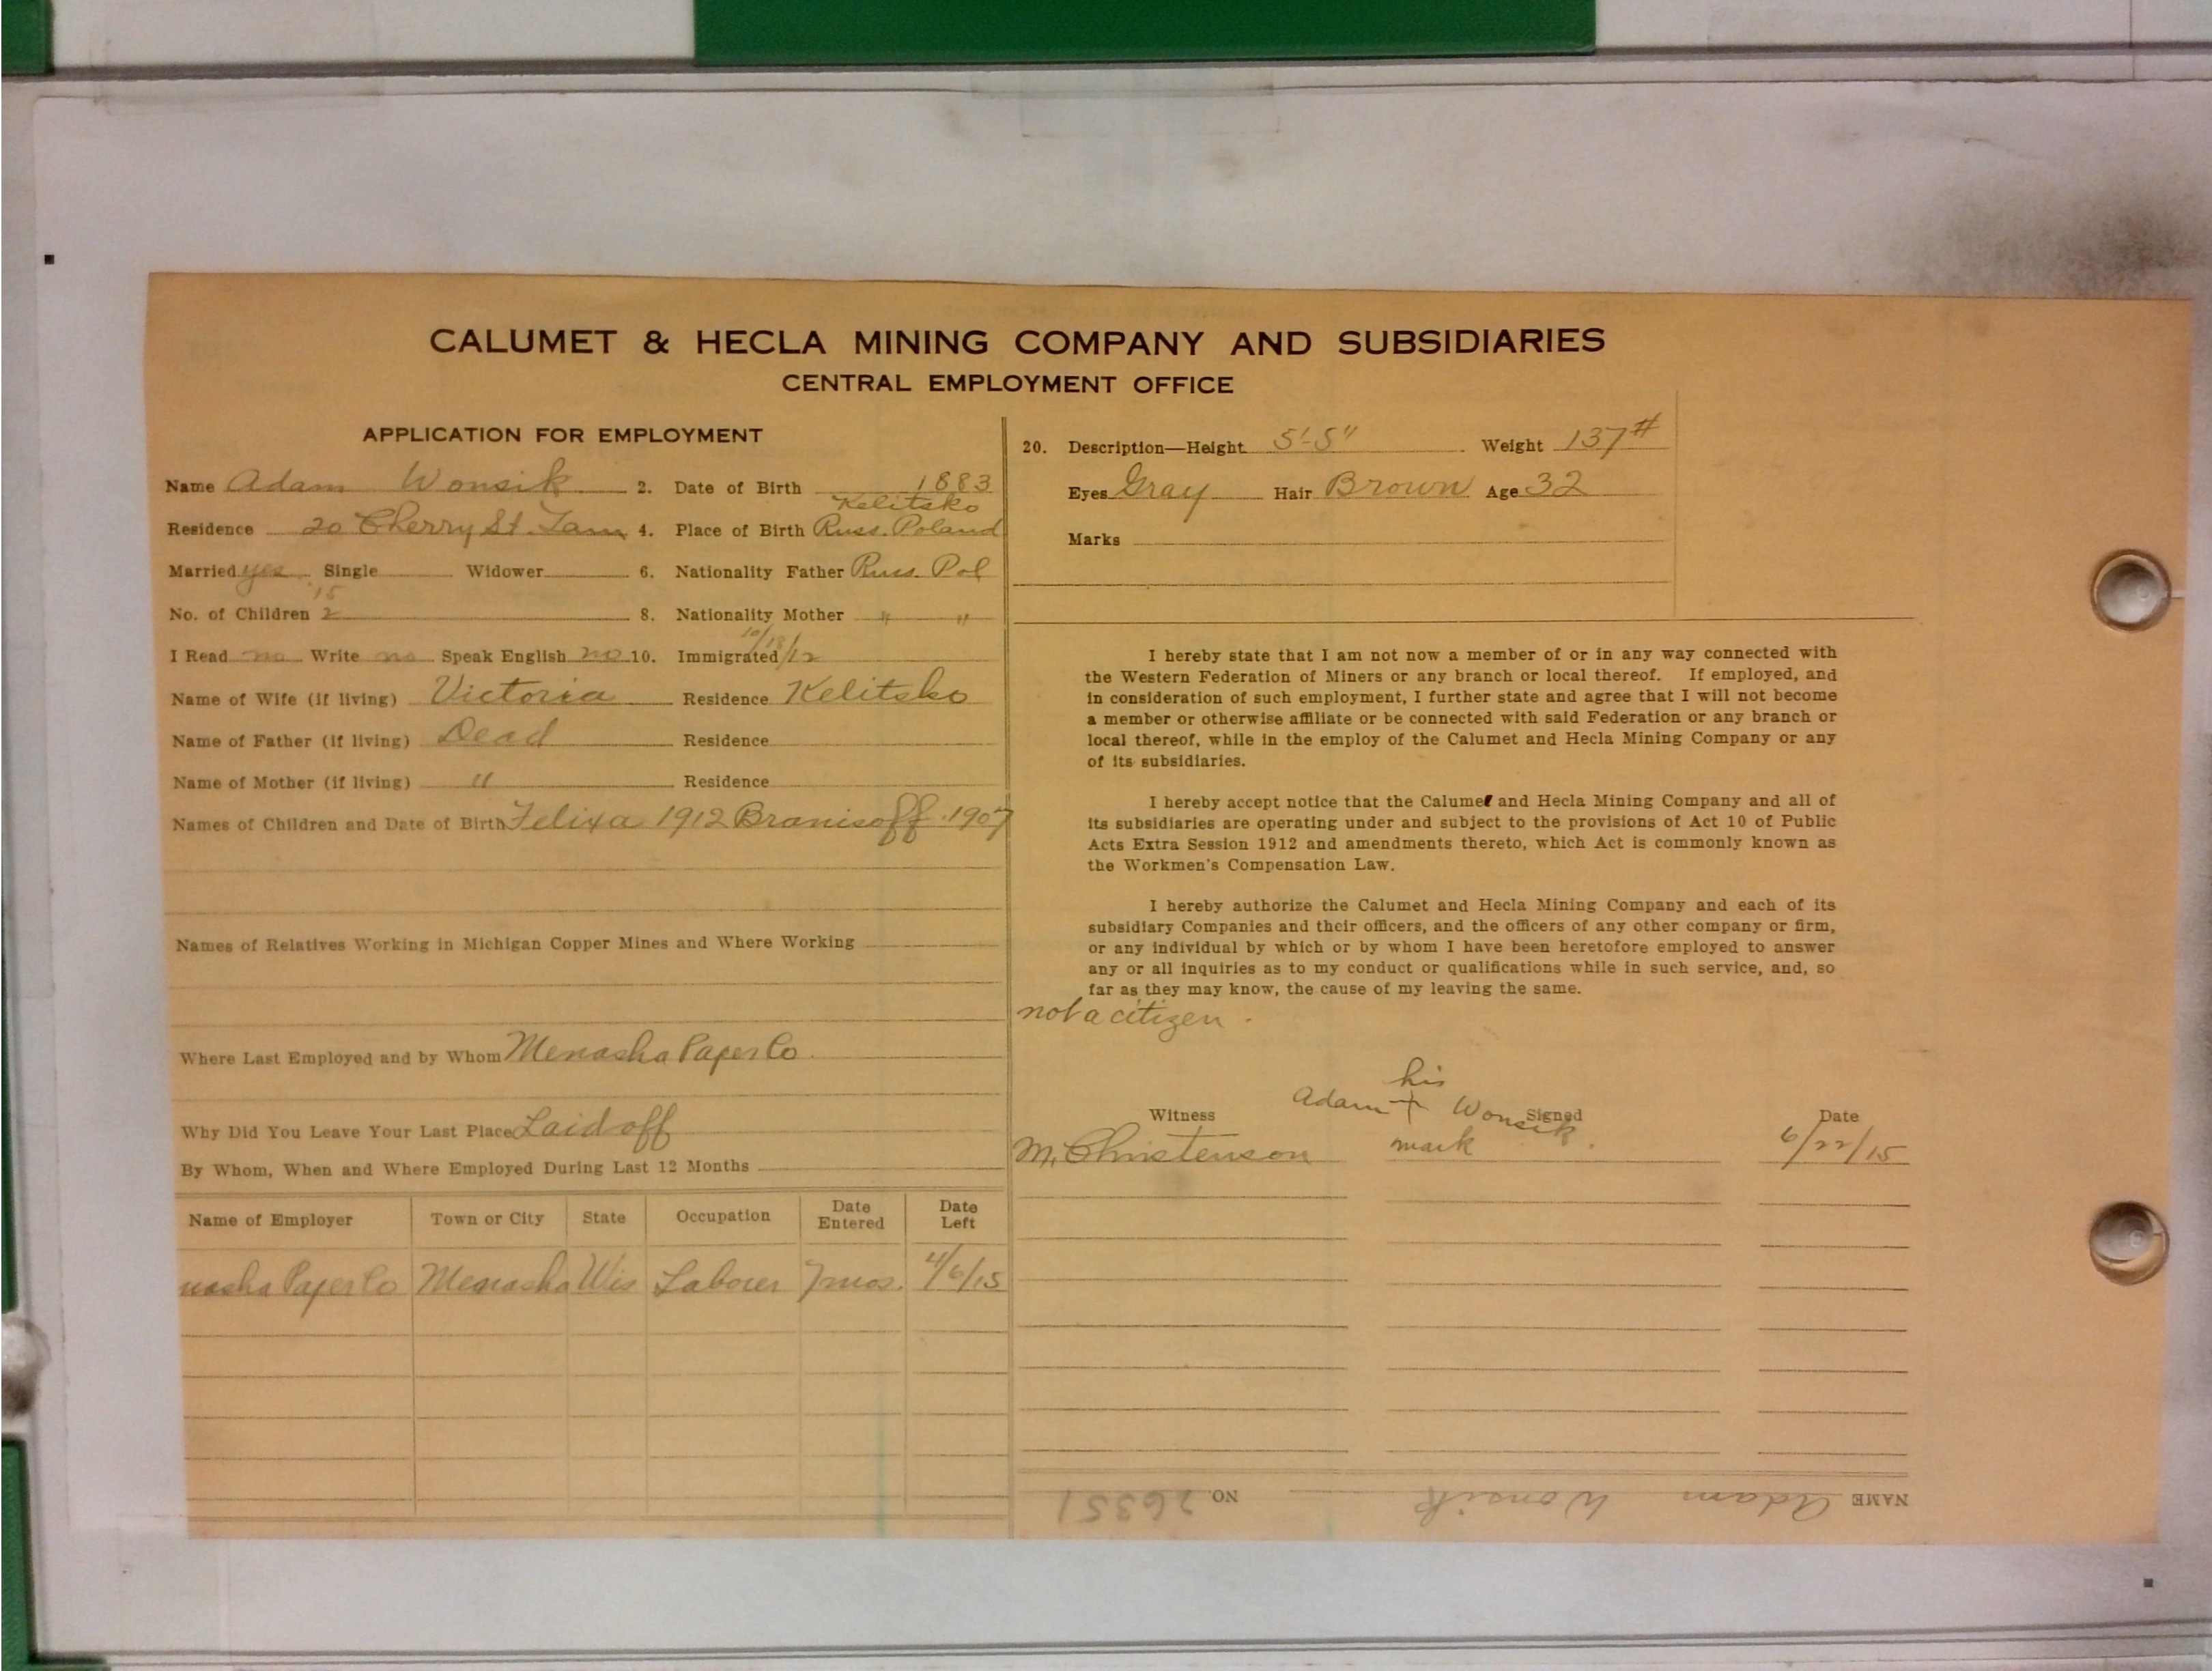 CALUMET & HECLA MINING COMPANY AND SUBSIDIARIES
CENTRAL EMPLOYMENT OFFICE
APPLICATION FOR EMPLOYMENT
Name Adam Wonsik 2. Date of Birth 1883
Kelitsko
Residence 20 Cherry St. Lam 4. Place of Birth Russ. Poland
Married yes Single Widower 6. Nationality Father Russ. Pol
15
No. of Children 2 8. Nationality Mother " "
I Read no Write no Speak English no 10. Immigrated 10/18/12
Name of Wife (if living) Victoria Residence Kelitsko
Name of Father (if living) Dead Residence
Name of Mother (if living) " Residence
Names of Children and Date of Birth Felixa 1912 Branisoff 1907
Names of Relatives Working in Michigan Copper Mines and Where Working
Where Last Employed and by Whom Menasha Paper Co.
Why Did You Leave Your Last Place Laid off
By Whom, When and Where Employed During Last 12 Months
Name of Employer Town or City State Occupation Date Entered Date Left
nasha Paper Co Menasha Wis Laborer 7 mos. 4/6/15
20. Description—Height 5'-5" Weight 137#
Eyes Gray Hair Brown Age 32
Marks
I hereby state that I am not now a member of or in any way connected with
the Western Federation of Miners or any branch or local thereof. If employed, and
in consideration of such employment, I further state and agree that I will not become
a member or otherwise affiliate or be connected with said Federation or any branch or
local thereof, while in the employ of the Calumet and Hecla Mining Company or any
of its subsidiaries.
I hereby accept notice that the Calumet and Hecla Mining Company and all of
its subsidiaries are operating under and subject to the provisions of Act 10 of Public
Acts Extra Session 1912 and amendments thereto, which Act is commonly known as
the Workmen's Compensation Law.
I hereby authorize the Calumet and Hecla Mining Company and each of its
subsidiary Companies and their officers, and the officers of any other company or firm,
or any individual by which or by whom I have been heretofore employed to answer
any or all inquiries as to my conduct or qualifications while in such service, and, so
far as they may know, the cause of my leaving the same.
not a citizen.
his
Adam + Wonsik
mark
Witness Signed Date
M. Christenson 6/22/15
NAME Adam Wonsik NO. 26351